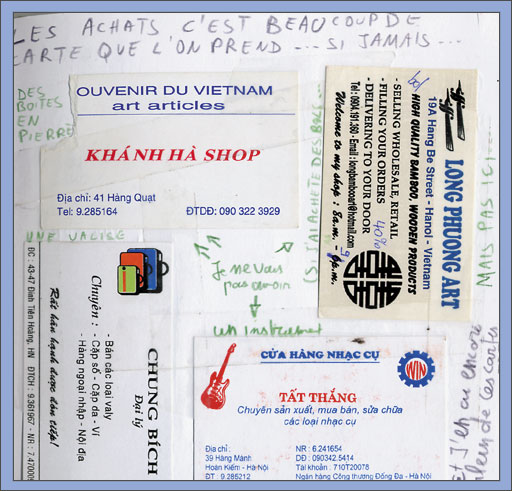 LES ACHATS C'EST BEAUCOUP DE
CARTE QUE L'ON PREND ... SI JAMAIS ...
DES
BOITES
EN
PIERRE
OUVENIR DU VIETNAM
art articles
KHÁNH HÀ SHOP
Địa chỉ: 41 Hàng Quạt
Tel: 9.285164
ĐTDĐ: 090 322 3929
LONG PHUONG ART
19A Hang Be Street - Hanoi - Vietnam
HIGH QUALITY BAMBOO, WOODEN PRODUCTS
- SELLING WHOLESALE, RETAIL
- FILLING YOUR ORDERS
- DELIVERING TO YOUR DOOR
40%
Tel: 0904.191.560 - Email: longbambooart@hotmail.com
Welcome to my shop: 8a.m. - 9p.m.
(SI J'AI ACHETÉ DES BAGUE...
MAIS PAS ICI ...
UNE VALISE
CHUNG BÍCH
Đại lý
Chuyên :
- Bán các loại valy
- Cặp số - Cặp da - Ví
- Hàng ngoại nhập - Nội địa
Rất hân hạnh được đón tiếp!
ĐC : 43-47 Đinh Tiên Hoàng, HN ĐTCH : 9.361967 - NR : 7.47008
Je ne vais
pas avoir
un instrument
CỬA HÀNG NHẠC CỤ
WIN
TẤT THẮNG
Chuyên sản xuất, mua bán, sửa chữa
các loại nhạc cụ
Địa chỉ :
39 Hàng Mành
Hoàn Kiếm - Hà Nội
ĐT : 9.285212
NR : 6.241654
DĐ : 090342.5414
Tài khoản : 710T20078
Ngân hàng Công thương Đống Đa - Hà Nội
et j'en ai encore
plein de les cartes